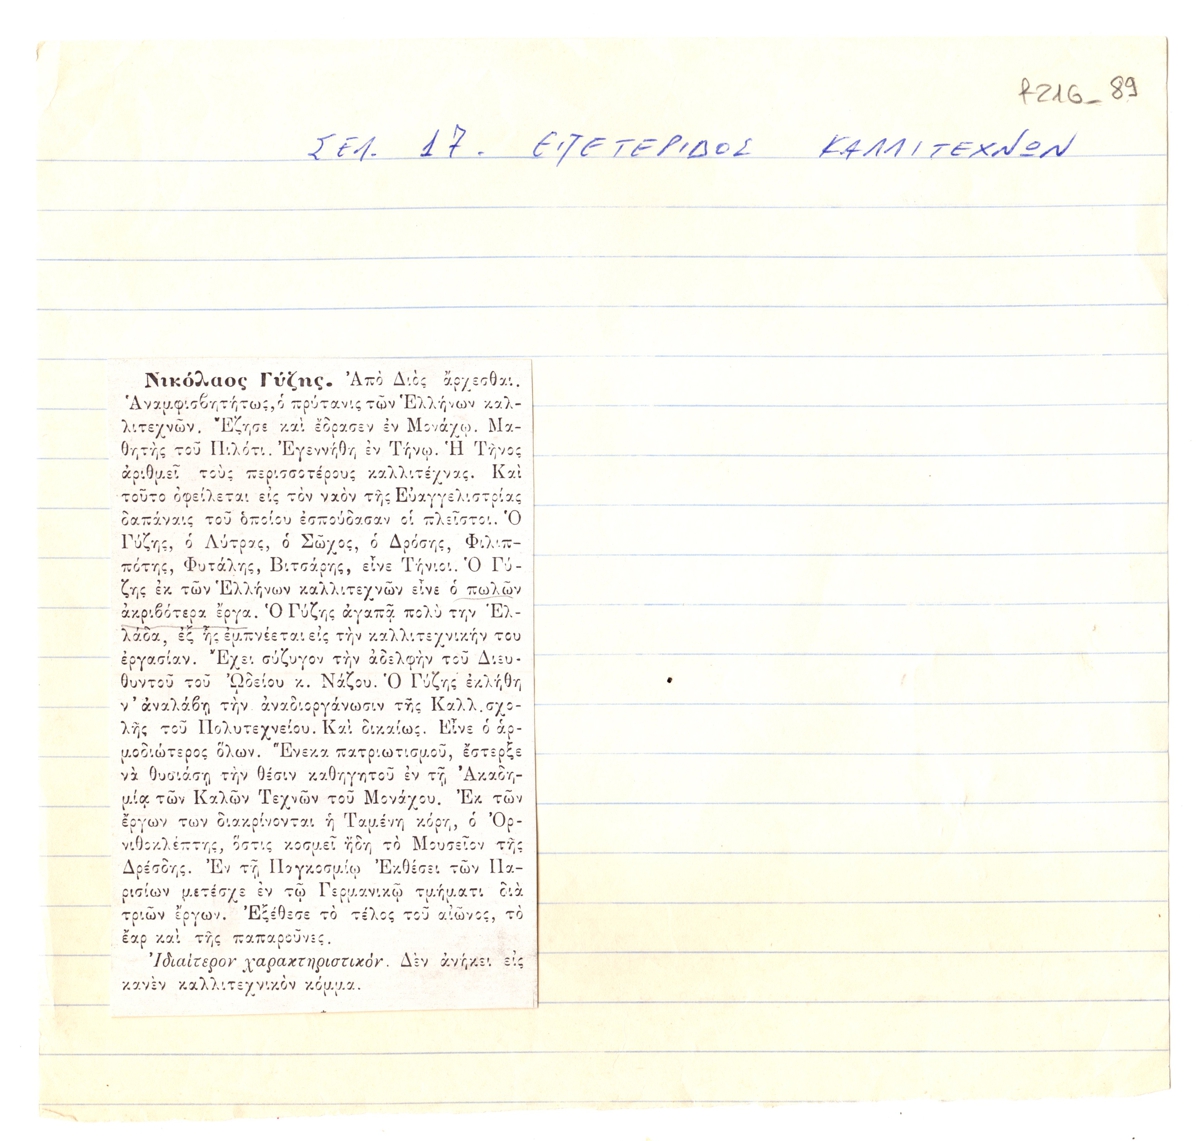 φ216_89
ΣΕΛ. 17. ΕΠΕΤΕΡΙΔΟΣ ΚΑΛΛΙΤΕΧΝΩΝ
Νικόλαος Γύζης. Ἀπὸ Διὸς ἄρχεσθαι.
Ἀναμφισβητήτως, ὁ πρύτανις τῶν Ἑλλήνων καλ-
λιτεχνῶν. Ἔζησε καὶ ἔδρασεν ἐν Μονάχῳ. Μα-
θητὴς τοῦ Πιλότι. Ἐγεννήθη ἐν Τήνῳ. Ἡ Τῆνος
ἀριθμεῖ τοὺς περισσοτέρους καλλιτέχνας. Καὶ
τοῦτο ὀφείλεται εἰς τὸν ναὸν τῆς Εὐαγγελιστρίας
δαπάναις τοῦ ὁποίου ἐσπούδασαν οἱ πλεῖστοι. Ὁ
Γύζης, ὁ Λύτρας, ὁ Σῶχος, ὁ Δρόσης, Φιλιπ-
πότης, Φυτάλης, Βιτσάρης, εἶνε Τήνιοι. Ὁ Γύ-
ζης ἐκ τῶν Ἑλλήνων καλλιτεχνῶν εἶνε ὁ πωλῶν
ἀκριβότερα ἔργα. Ὁ Γύζης ἀγαπᾷ πολὺ την Ἑλ-
λάδα, ἐξ ἧς ἐμπνέεται εἰς τὴν καλλιτεχνικήν του
ἐργασίαν. Ἔχει σύζυγον τὴν ἀδελφὴν τοῦ Διευ-
θυντοῦ τοῦ Ὠδείου κ. Νάζου. Ὁ Γύζης ἐκλήθη
ν' ἀναλάβῃ τὴν ἀναδιοργάνωσιν τῆς Καλλ. σχο-
λῆς τοῦ Πολυτεχνείου. Καὶ δικαίως. Εἶνε ὁ ἁρ-
μοδιώτερος ὅλων. Ἕνεκα πατριωτισμοῦ, ἔστερξε
νὰ θυσιάσῃ τὴν θέσιν καθηγητοῦ ἐν τῇ Ἀκαδη-
μίᾳ τῶν Καλῶν Τεχνῶν τοῦ Μονάχου. Ἐκ τῶν
ἔργων των διακρίνονται ἡ Ταμένη κόρη, ὁ Ὀρ-
νιθοκλέπτης, ὅστις κοσμεῖ ἤδη τὸ Μουσεῖον τῆς
Δρέσδης. Ἐν τῇ Παγκοσμίῳ Ἐκθέσει τῶν Πα-
ρισίων μετέσχε ἐν τῷ Γερμανικῷ τμήματι διὰ
τριῶν ἔργων. Ἐξέθεσε τὸ τέλος τοῦ αἰῶνος, τὸ
ἔαρ καὶ τῆς παπαροῦνες.
Ἰδιαίτερον χαρακτηριστικόν. Δὲν ἀνήκει εἰς
κανὲν καλλιτεχνικὸν κόμμα.